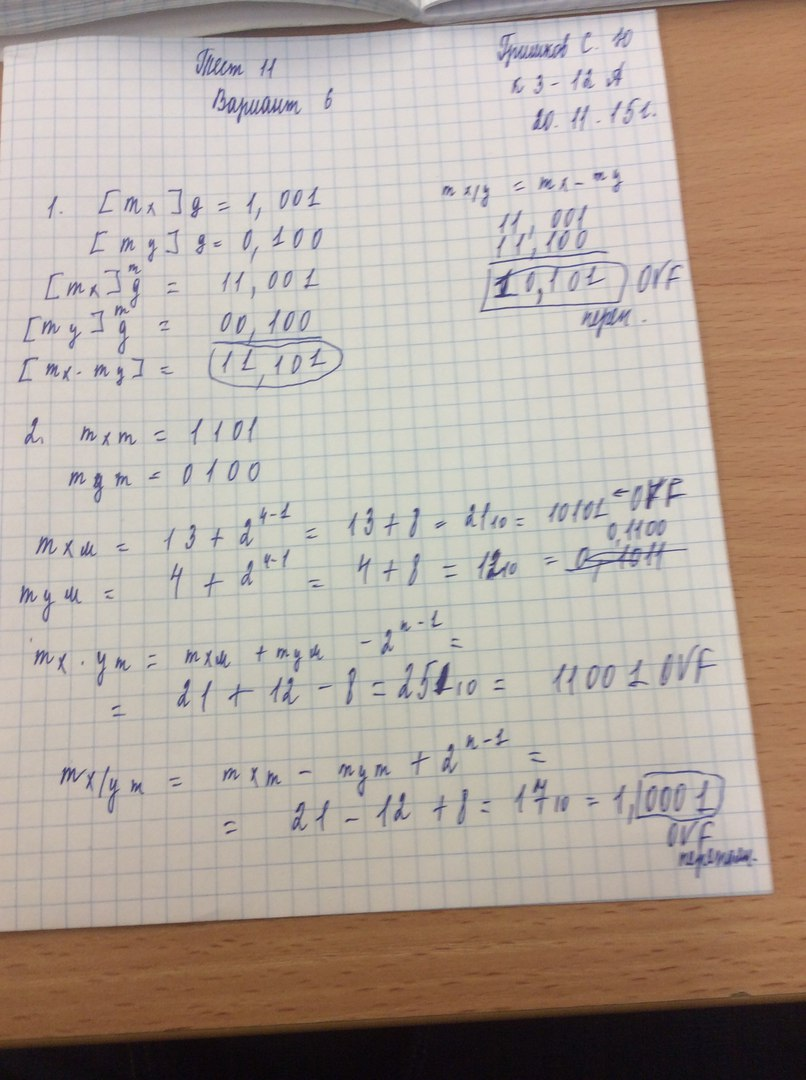 Тест 11
Вариант 6
Гришков С. Ю
К 3 - 12 А
20. 11. 15 г.
1. [mx]g = 1, 001
[my] g = 0, 100
[mx]g^m = 11, 001
[my]g^m = 00, 100
[mx·my] = 11, 101
mx/y = mx - my
11, 001
11, 100
10, 101 OVF
переп.
2. mxm = 1101
mym = 0100
mxм = 13 + 2^4-1 = 13 + 8 = 21₁₀ = 10101 - OVF
0,1100
myм = 4 + 2^4-1 = 4 + 8 = 12₁₀ = 0, 1011
mx · ym = mxм + myм - 2^n-1 =
= 21 + 12 - 8 = 25₁₀ = 11001 OVF
mx/ym = mxm - mym + 2^n-1 =
= 21 - 12 + 8 = 17₁₀ = 1, 0001
OVF